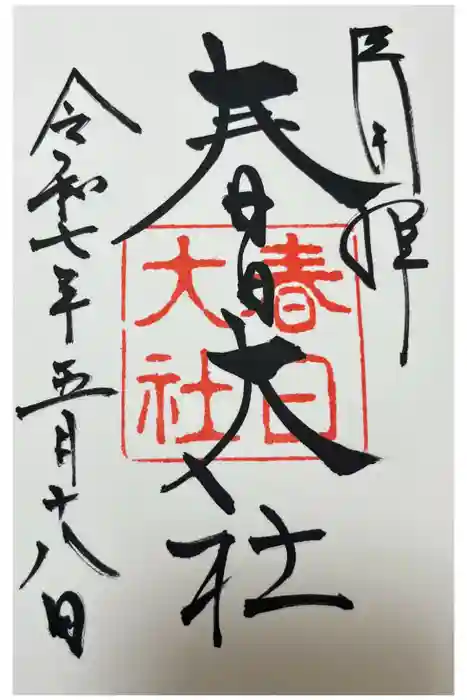 春日大社
春日
大社
令和七年五月十八日